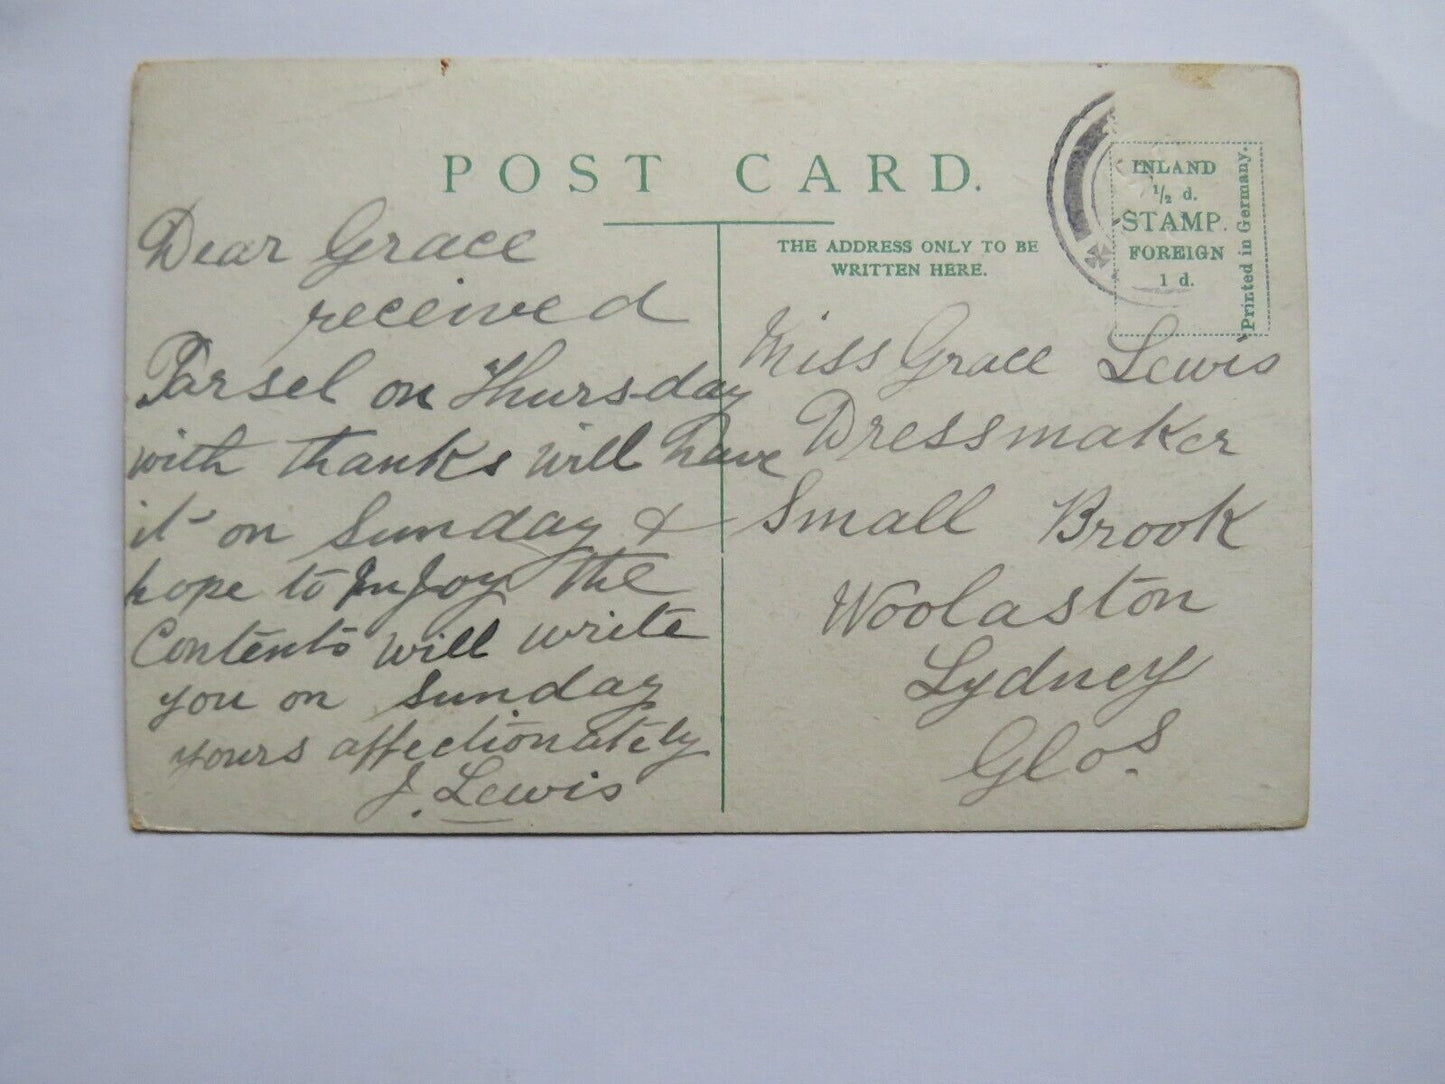 POST CARD.
Dear Grace
received
Parsel on Thursday
with thanks will have
it on Sunday &
hope to InJoy the
Contents will write
you on Sunday
yours affectionately
J. Lewis
THE ADDRESS ONLY TO BE
WRITTEN HERE.
INLAND
½ d.
STAMP.
FOREIGN
1 d.
Printed in Germany.
Miss Grace Lewis
Dressmaker
Small Brook
Woolaston
Lydney
Glos.